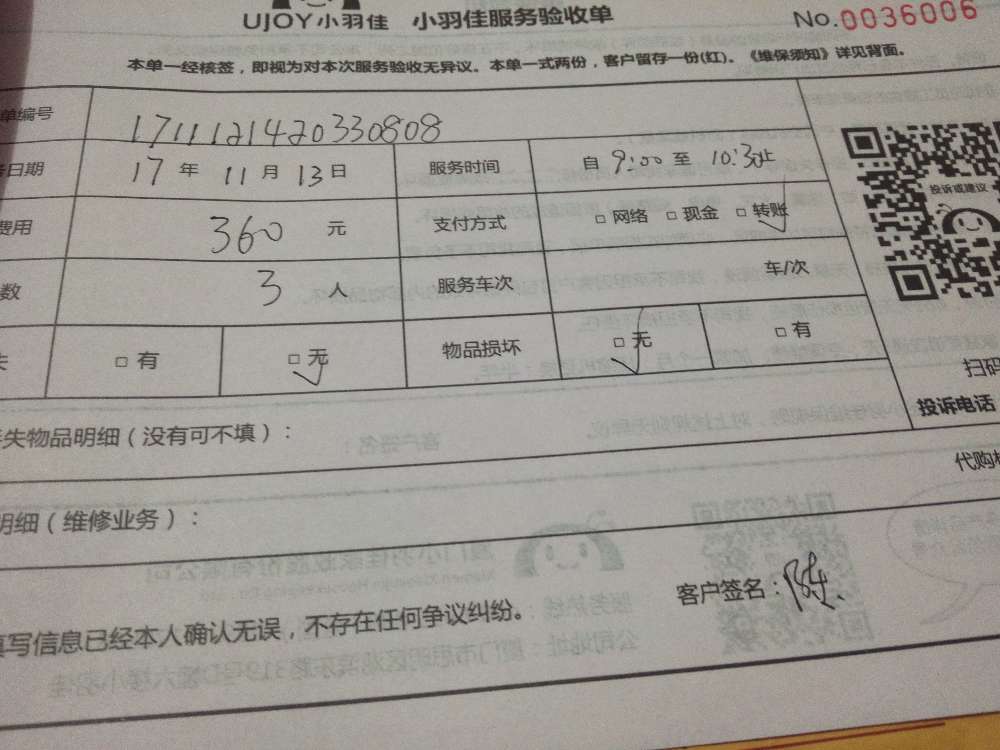 UJOY小羽佳 小羽佳服务验收单 No.0036006
本单一经核签，即视为对本次服务验收无异议。本单一式两份，客户留存一份(红)。《维保须知》详见背面。
单编号 1711121420330808
日期 17 年 11 月 13 日 服务时间 自 9:00 至 10:30止
费用 360 元 支付方式 □ 网络 □ 现金 □ 转账
数 3 人 服务车次 车/次
投诉或建议
失 □ 有 □ 无 物品损坏 □ 无 □ 有
扫码
投诉电话
失物品明细（没有可不填）：
代购
明细（维修业务）：
填写信息已经本人确认无误，不存在任何争议纠纷。 客户签名：陈